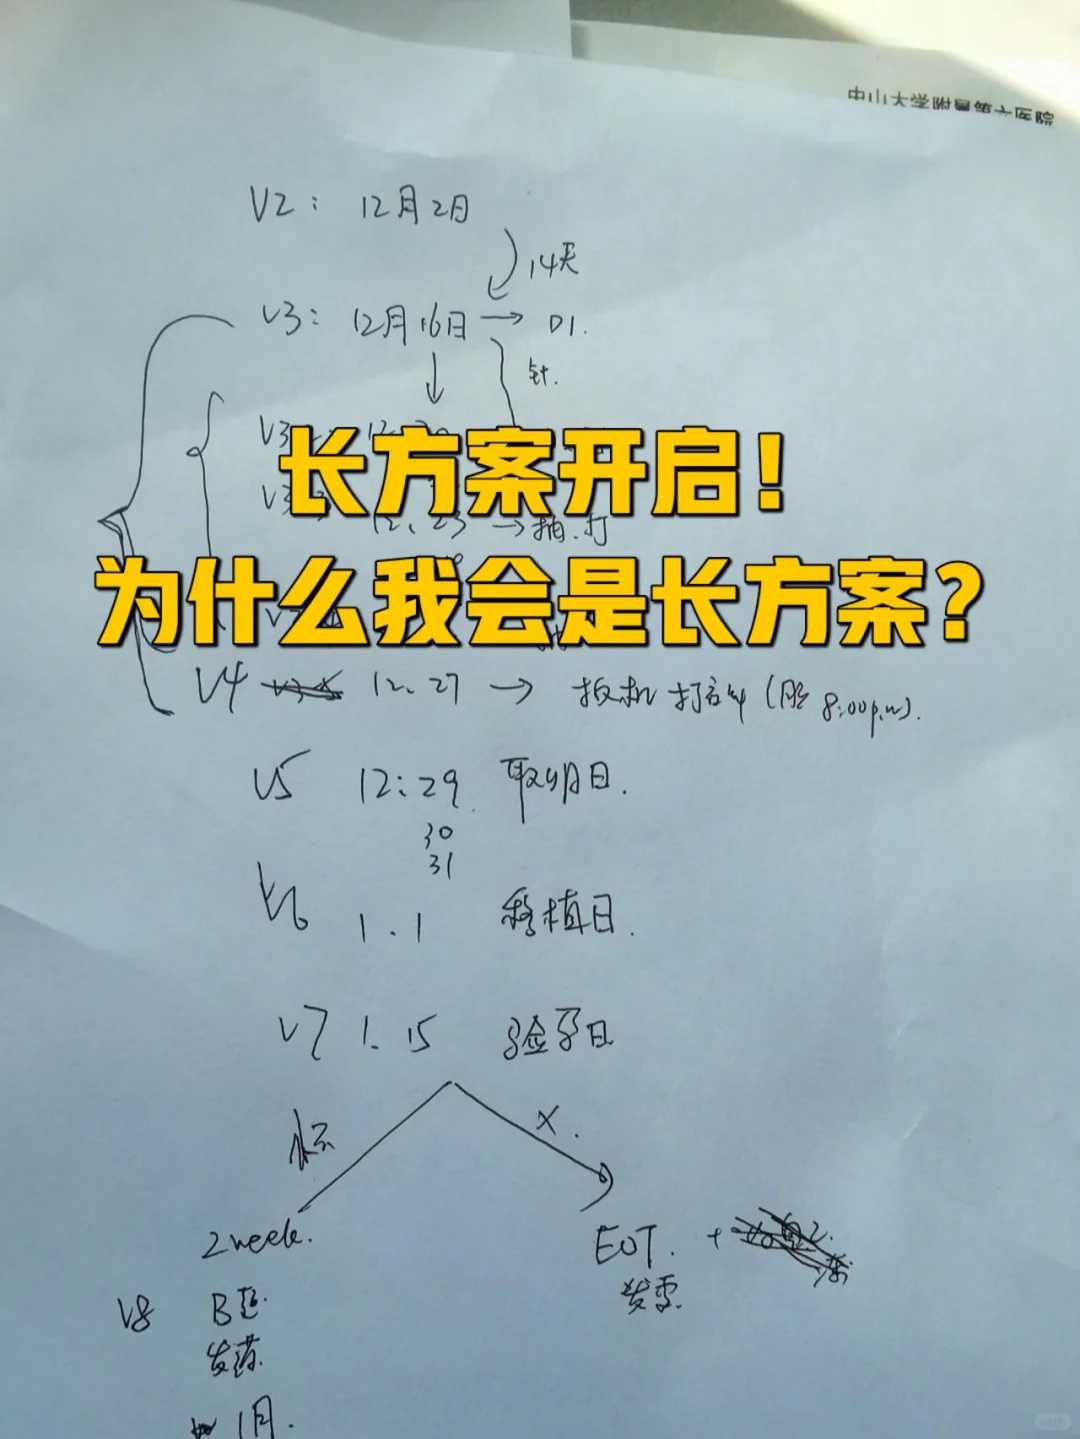 中山大学附属第六医院
V2： 12月2日
14天
V3： 12月16日 → D1.
针.
长方案开启！
12.23 → 抽.打
为什么我会是长方案？
V4 12.27 → 扳机 打针 (8:00p.m).
V5 12:29 取卵日.
30
31
V6 1.1 移植日.
V7 1.15 验孕日
X.
2week. EOT. +
发票.
V8 B超.
发药.
1月.